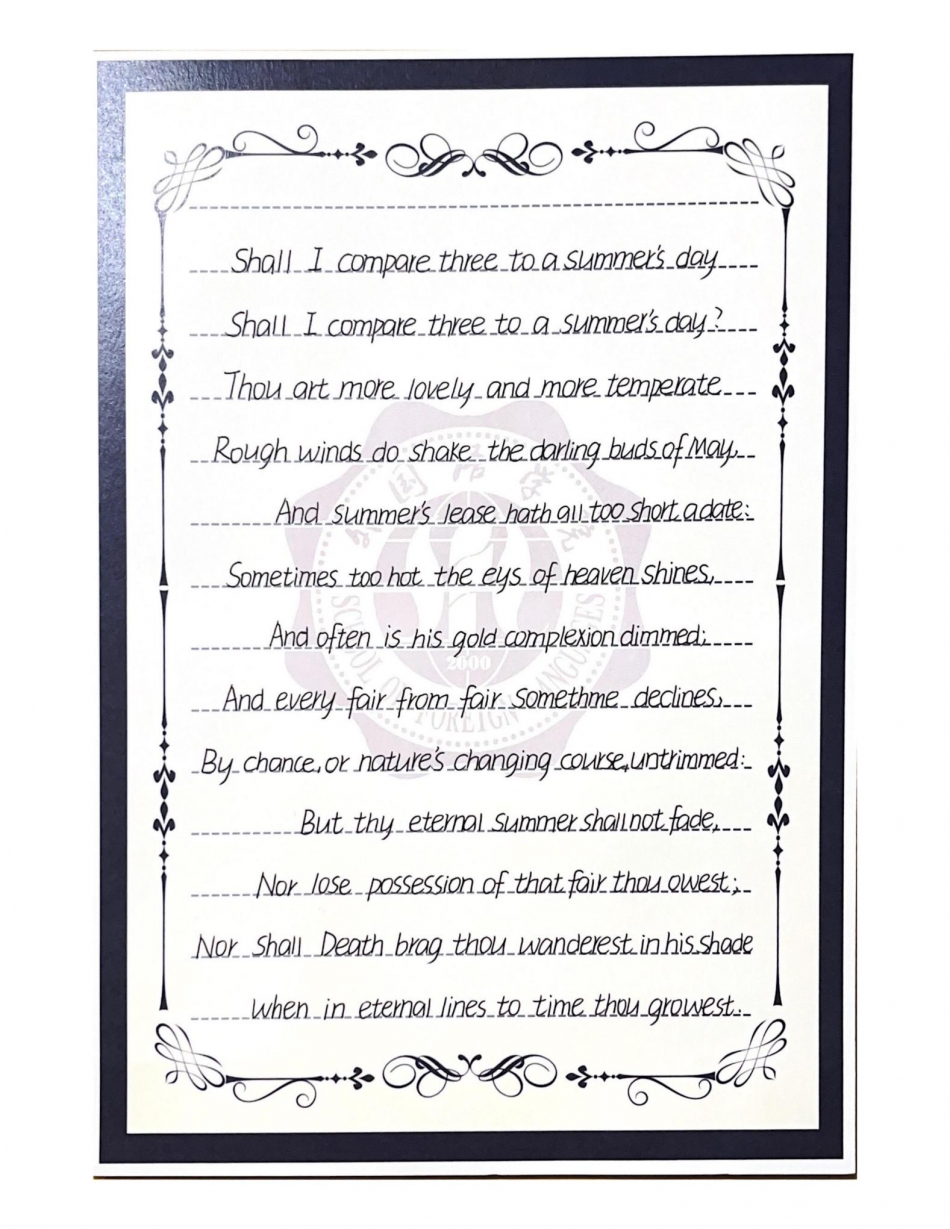 Shall I compare three to a summer's day
Shall I compare three to a summer's day?
Thou art more lovely and more temperate
Rough winds do shake the darling buds of May,
And summer's lease hath all too short a date:
Sometimes too hot the eys of heaven shines,
And often is his gold complexion dimmed;
And every fair from fair somethme declines,
By chance, or nature's changing course, untrimmed:
But thy eternal summer shall not fade,
Nor lose possession of that fair thou owest;
Nor shall Death brag thou wanderest in his shade
When in eternal lines to time thou growest.
外国语学院
SCHOOL OF FOREIGN LANGUAGES
2000